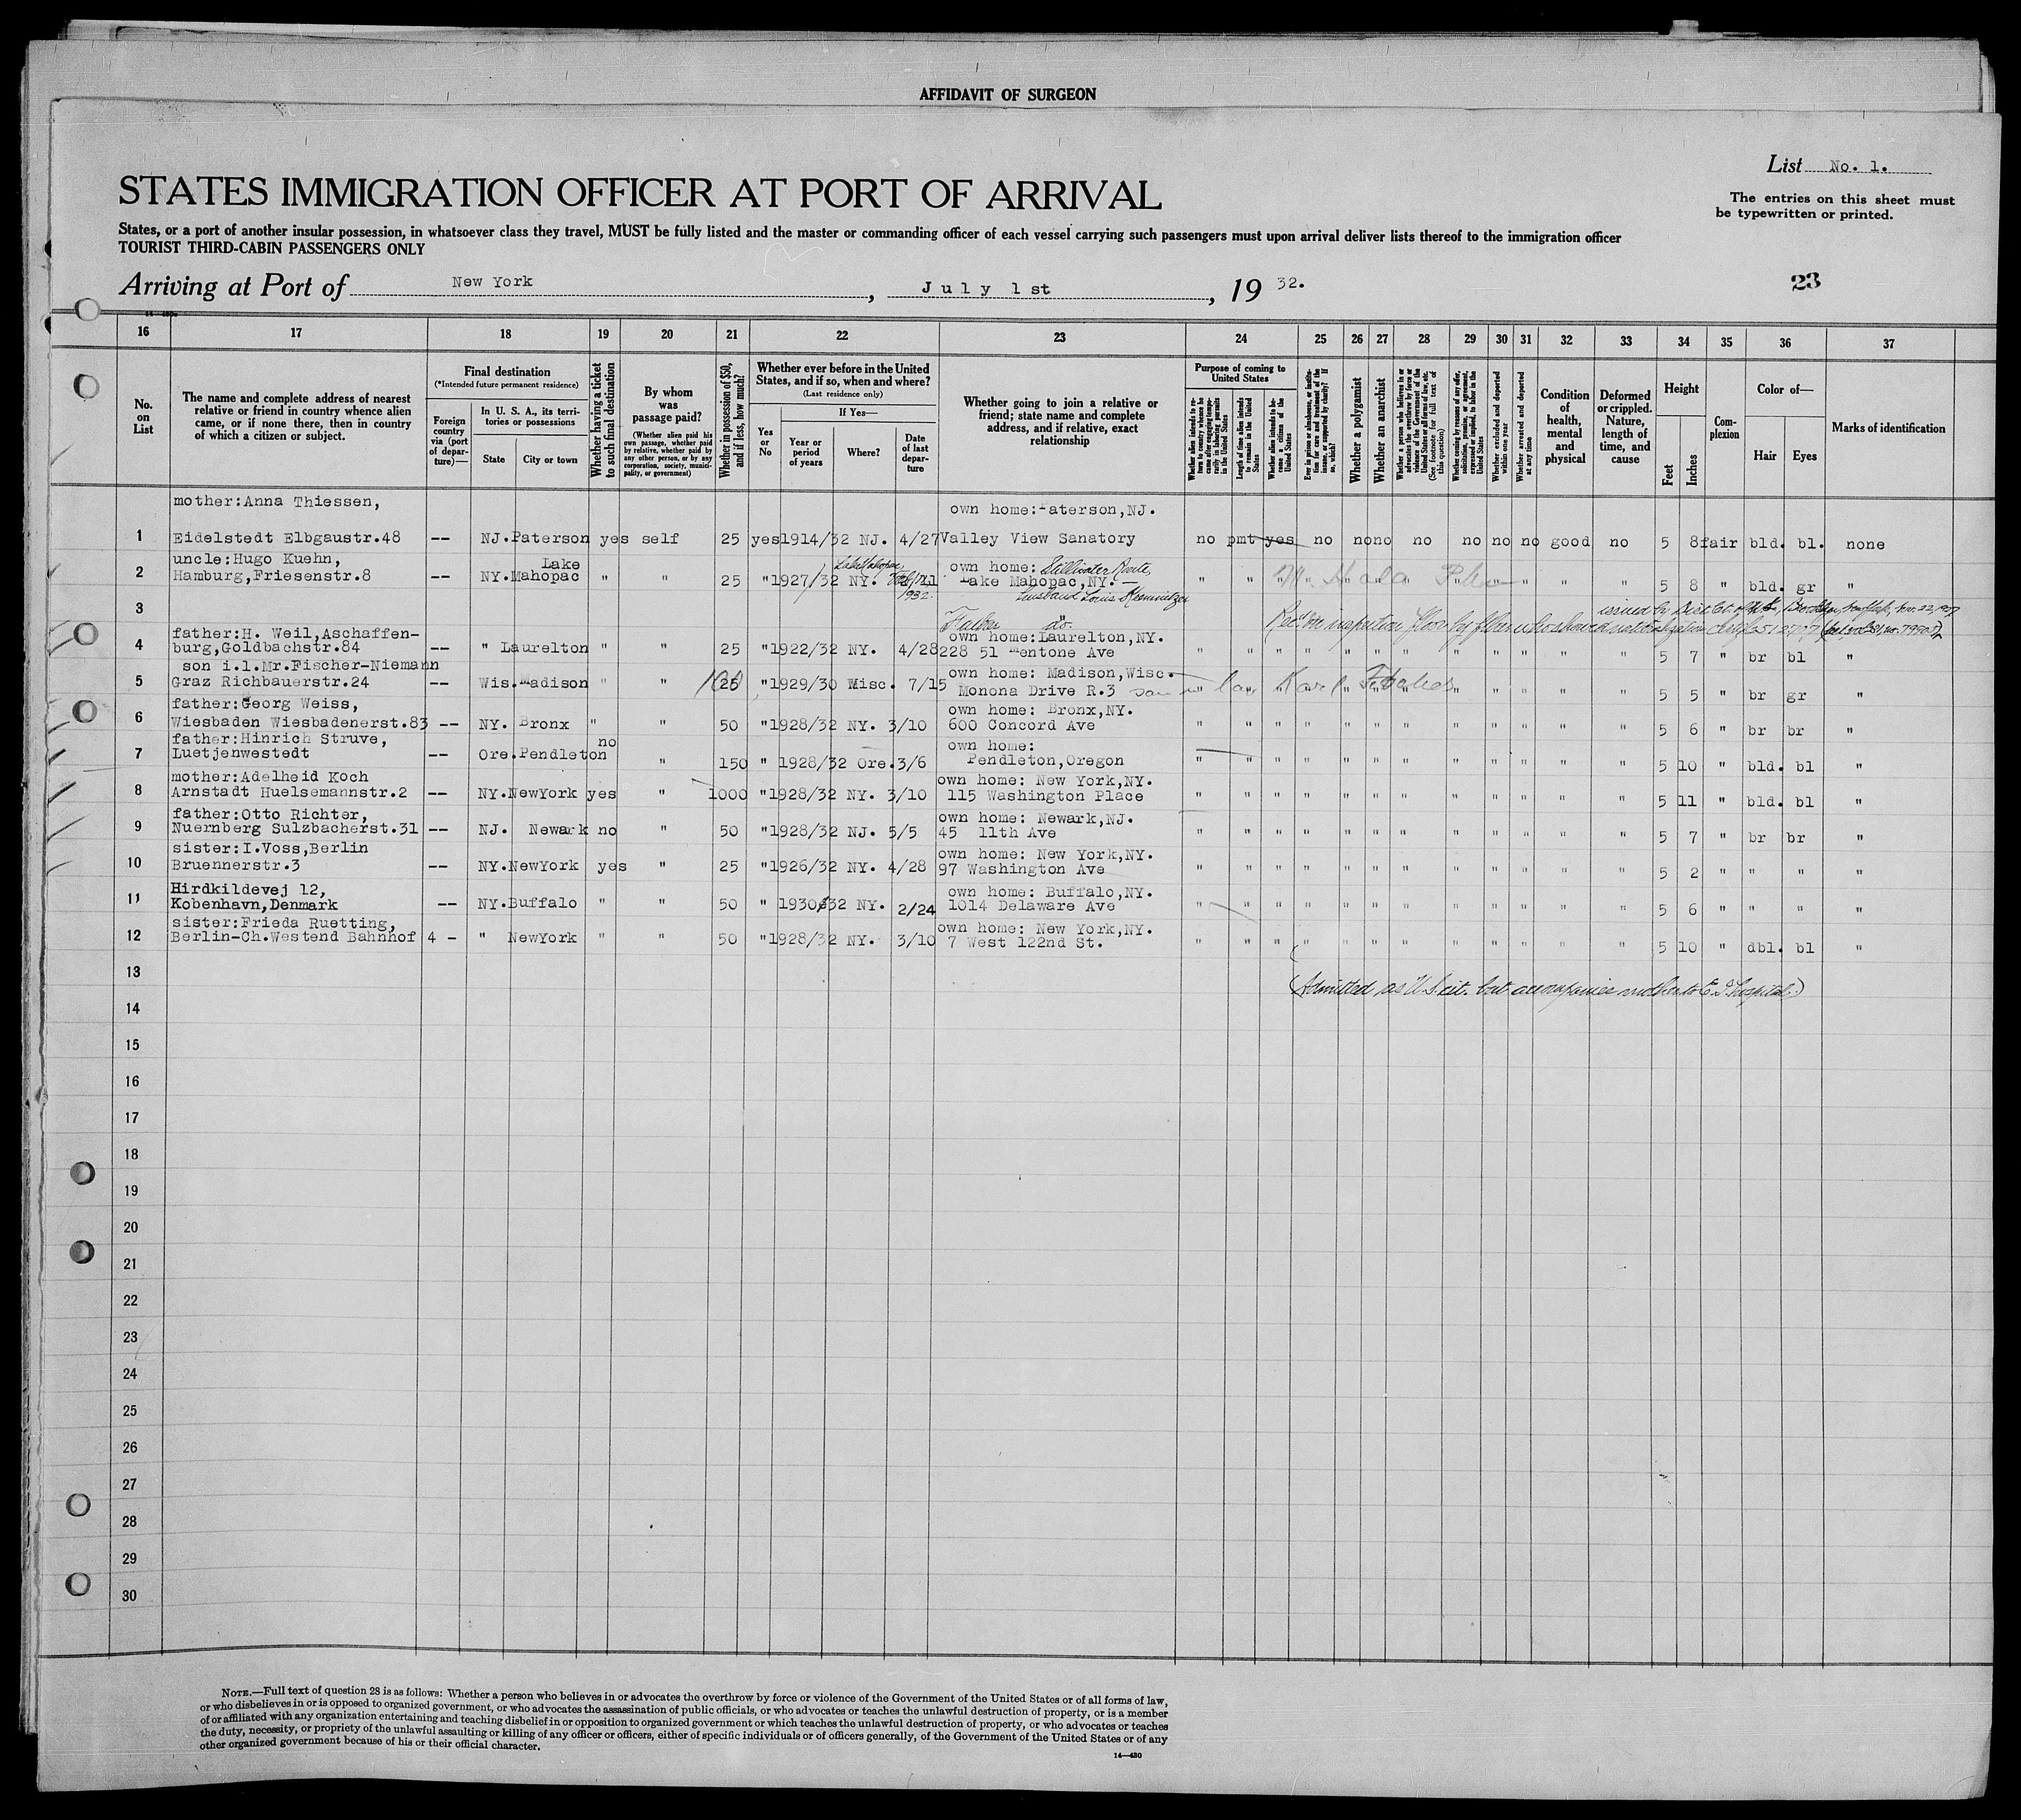 AFFIDAVIT OF SURGEON
List No. 1.
STATES IMMIGRATION OFFICER AT PORT OF ARRIVAL
The entries on this sheet must
be typewritten or printed.
States, or a port of another insular possession, in whatsoever class they travel, MUST be fully listed and the master or commanding officer of each vessel carrying such passengers must upon arrival deliver lists thereof to the immigration officer
TOURIST THIRD-CABIN PASSENGERS ONLY
Arriving at Port of New York, July 1st, 19 32.
23
16 17 18 19 20 21 22 23 24 25 26 27 28 29 30 31 32 33 34 35 36 37
No. on List
The name and complete address of nearest
relative or friend in country whence alien
came, or if none there, then in country
of which a citizen or subject.
Final destination
(*Intended future permanent residence)
Foreign country via (port of departure)—
In U. S. A., its territories or possessions
State
City or town
Whether having a ticket to such final destination
By whom was passage paid?
(Whether alien paid his own passage, whether paid by relative, whether paid by any other person, or by any corporation, society, municipality, or government)
Whether in possession of $50, and if less, how much?
Whether ever before in the United
States, and if so, when and where?
(Last residence only)
Yes or No
If Yes—
Year or period of years
Where?
Date of last departure
Whether going to join a relative or
friend; state name and complete
address, and if relative, exact
relationship
Purpose of coming to United States
Length of time alien intends to remain in the United States
Whether alien intends to become a citizen of the United States
Whether a polygamist
Whether an anarchist
Whether excluded and deported within one year
Whether arrested and deported at any time
Condition of health, mental and physical
Deformed or crippled. Nature, length of time, and cause
Height
Feet
Inches
Complexion
Color of—
Hair
Eyes
Marks of identification
mother:Anna Thiessen, own home: aterson,NJ.
1 Eidelstedt Elbgaustr.48 -- NJ. Paterson yes self 25 yes 1914/32 NJ. 4/27 Valley View Sanatory no pmt yes no no no no no no no good no 5 8 fair bld. bl. none
uncle:Hugo Kuehn, Lake Lake Mahopac, own home: Stillwater Route,
2 Hamburg,Friesenstr.8 -- NY. Mahopac " " 25 " 1927/32 NY. Lake Mahopac,NY.— " " " " " " " 5 8 " bld. gr "
1932. husband Louis
3 Father do.
father:H. Weil,Aschaffen- own home:Laurelton,NY.
4 burg,Goldbachstr.84 -- " Laurelton " " 25 " 1922/32 NY. 4/28 228 51 Mentone Ave " " " " " " " " " " " " 5 7 " br bl "
son i.l.Mr.Fischer-Niemann own home: Madison,Wisc.
5 Graz Richbauerstr.24 -- Wis. Madison " " 100 25 " 1929/30 Wisc. 7/15 Monona Drive R.3 son in law Karl " " " " " " 5 5 " br gr "
father:Georg Weiss, own home: Bronx,NY.
6 Wiesbaden Wiesbadenerst.83 -- NY. Bronx " " 50 " 1928/32 NY. 3/10 600 Concord Ave " " " " " " " " " " " " 5 6 " br br "
father:Hinrich Struve, no own home:
7 Luetjenwestedt -- Ore. Pendleton " 150 " 1928/32 Ore. 3/6 Pendleton,Oregon " " " " " " " " " " " " 5 10 " bld. bl "
mother:Adelheid Koch own home: New York,NY.
8 Arnstadt Huelsemannstr.2 -- NY. NewYork yes " 1000 " 1928/32 NY. 3/10 115 Washington Place " " " " " " " " " " " " 5 11 " bld. bl "
father:Otto Richter, own home: Newark,NJ.
9 Nuernberg Sulzbacherst.31 -- NJ. Newark no " 50 " 1928/32 NJ. 5/5 45 11th Ave " " " " " " " " " " " " 5 7 " br br "
sister:I.Voss,Berlin own home: New York,NY.
10 Bruennerstr.3 -- NY. NewYork yes " 25 " 1926/32 NY. 4/28 97 Washington Ave " " " " " " " " " " " " 5 2 " " " "
Hirdkildevej 12, own home: Buffalo,NY.
11 Kobenhavn,Denmark -- NY. Buffalo " " 50 " 1930/32 NY. 2/24 1014 Delaware Ave " " " " " " " " " " " " 5 6 " " " "
sister:Frieda Ruetting, own home: New York,NY.
12 Berlin-Ch.Westend Bahnhof 4 - " NewYork " " 50 " 1928/32 NY. 3/10 7 West 122nd St. " " " " " " " " " " " " 5 10 " dbl. bl "
13
(Admitted as U.S. cit. but accompanies mother to E.I. hospital.)
14
15
16
17
18
19
20
21
22
23
24
25
26
27
28
29
30
NOTE.—Full text of question 28 is as follows: Whether a person who believes in or advocates the overthrow by force or violence of the Government of the United States or of all forms of law,
or who disbelieves in or is opposed to organized government, or who advocates the assassination of public officials, or who advocates or teaches the unlawful destruction of property, or is a member
of or affiliated with any organization entertaining and teaching disbelief in or opposition to organized government or which teaches the unlawful destruction of property, or who advocates or teaches
the duty, necessity, or propriety of the unlawful assaulting or killing of any officer or officers, either of specific individuals or of officers generally, of the Government of the United States or of any
other organized government because of his or their official character.
14—430